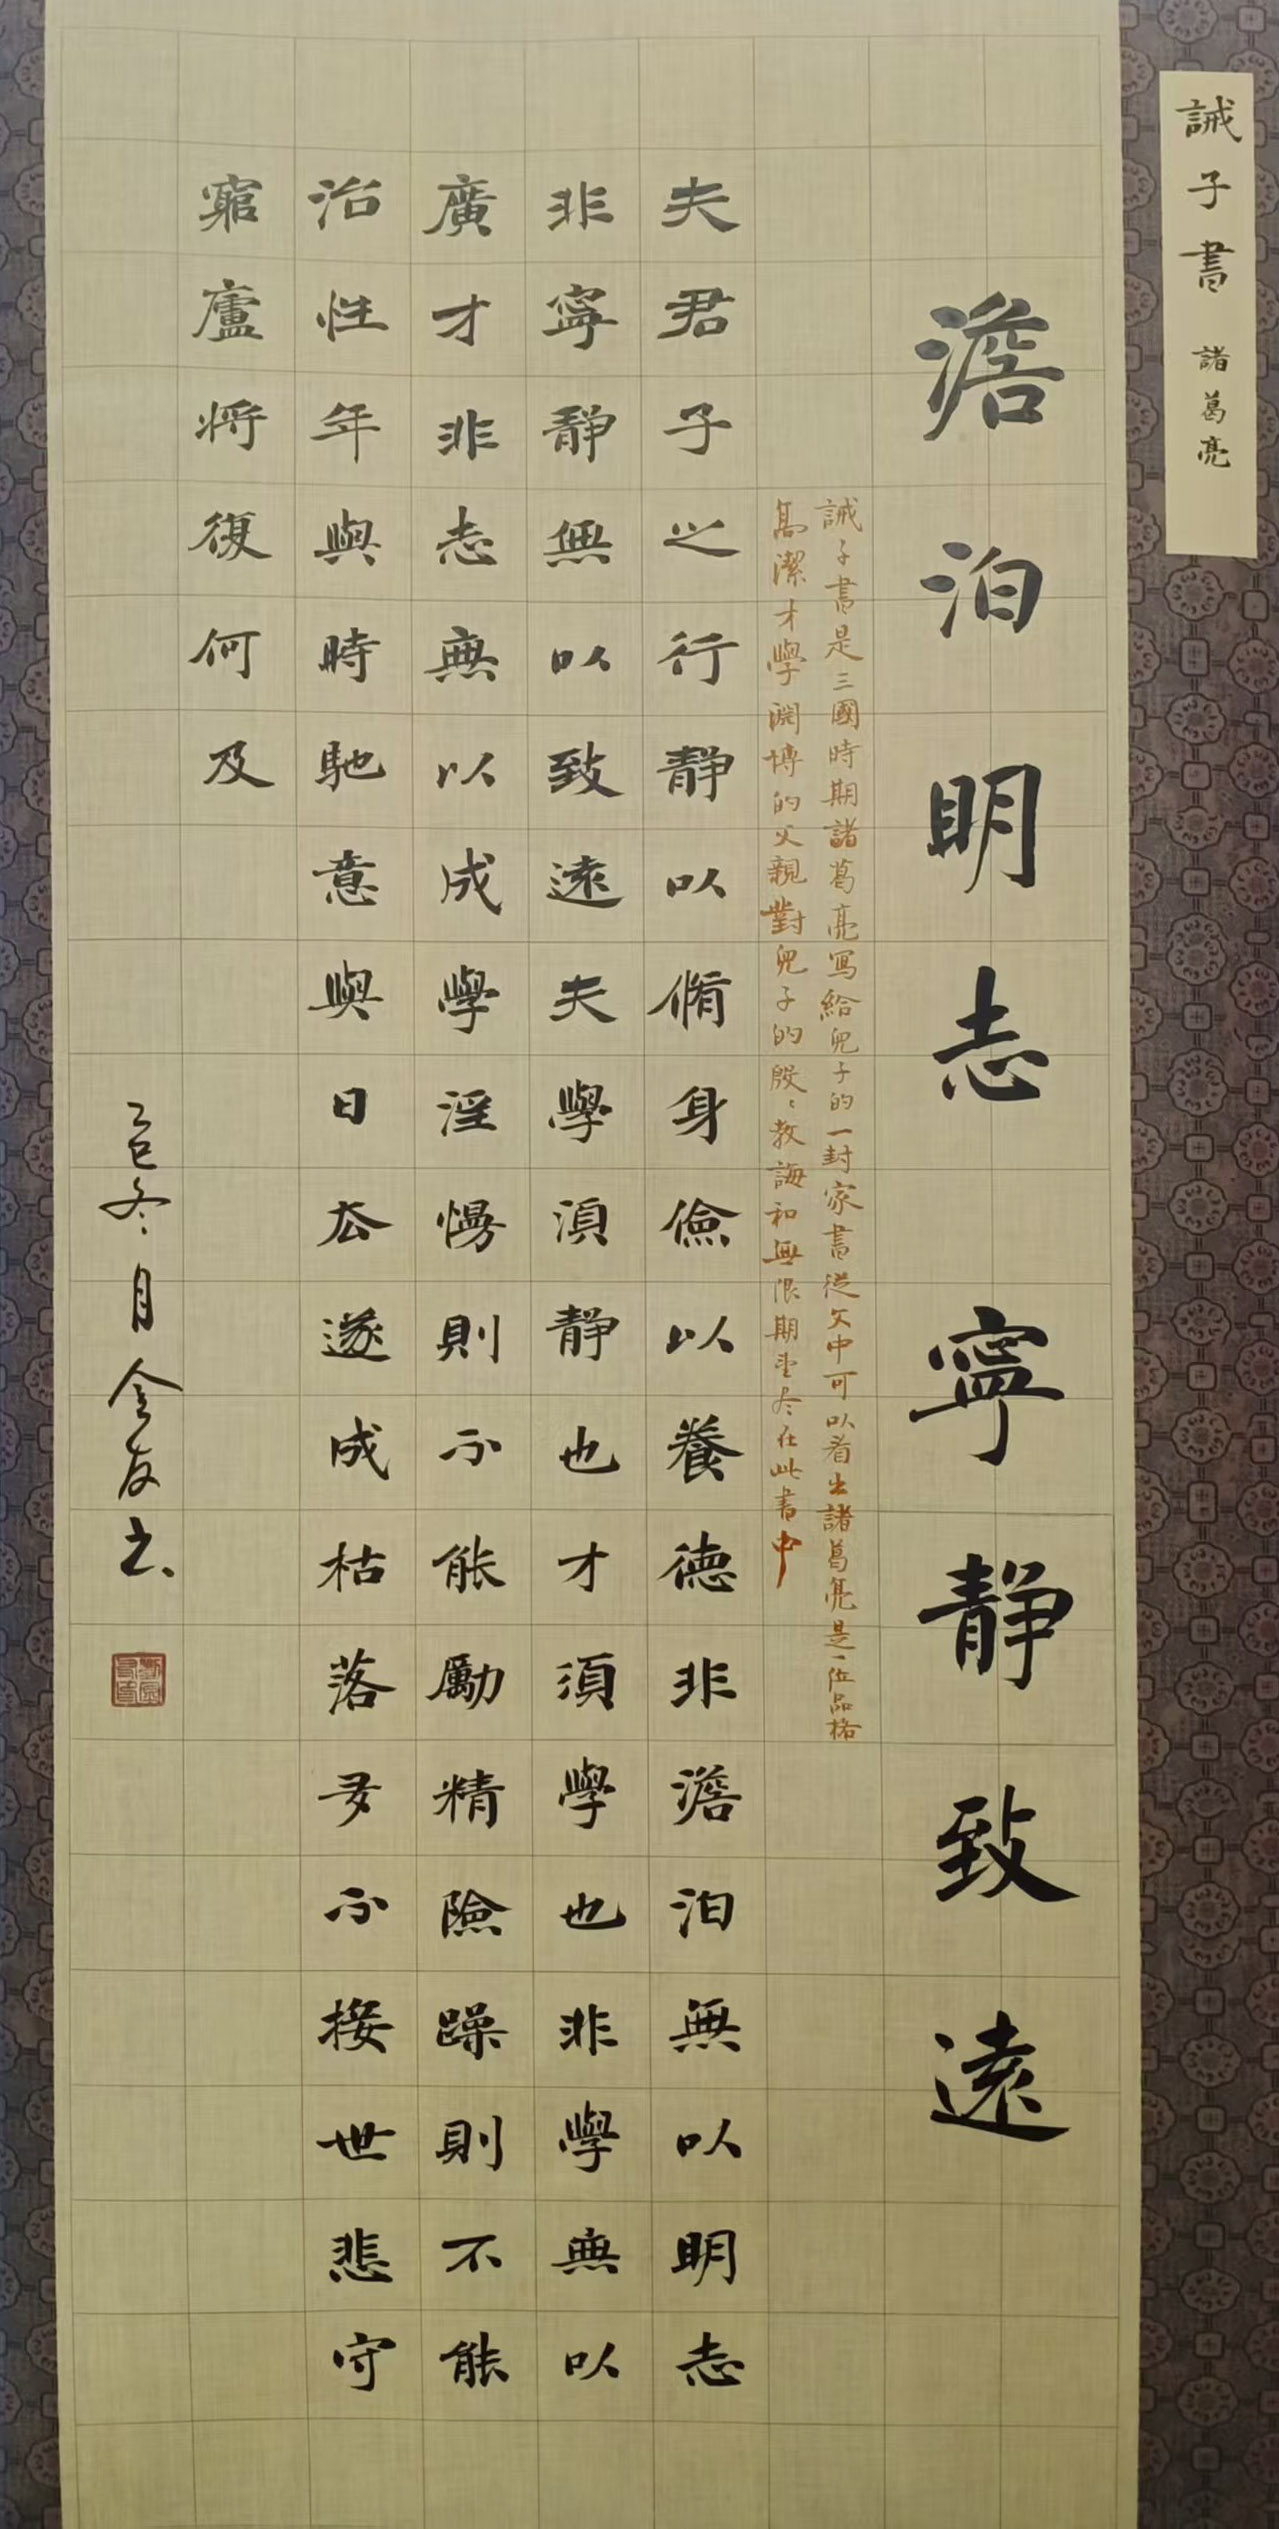 誡子書 諸葛亮
澹泊明志 寧靜致遠
誡子書是三國時期諸葛亮寫給兒子的一封家書從文中可以看出諸葛亮是一位品格
高潔才學淵博的父親對兒子的殷〻教誨和無限期望尽在此書中
夫君子之行靜以脩身儉以養德非澹泊無以明志
非寧靜無以致遠夫學須靜也才須學也非學無以
廣才非志無以成學淫慢則不能勵精險躁則不能
治性年與時馳意與日去遂成枯落多不接世悲守
窮廬將復何及
乙巳冬月金友書